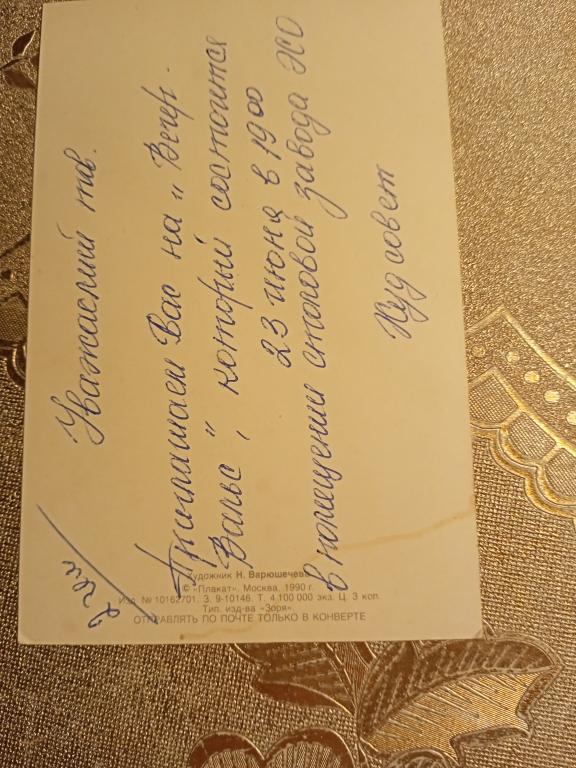 Уважаемый тов.
Приглашаем Вас на „Вечер
Вальс", который состоится
23 июня в 19 00
в помещении столовой завода ЖО
Худ совет
2 чел
Художник Н. Варюшечева
© «Плакат». Москва. 1990 г.
Изд. № 10162701. З. 9-10146. Т. 4.100 000 экз. Ц. 3 коп.
Тип. изд-ва «Зоря».
ОТПРАВЛЯТЬ ПО ПОЧТЕ ТОЛЬКО В КОНВЕРТЕ